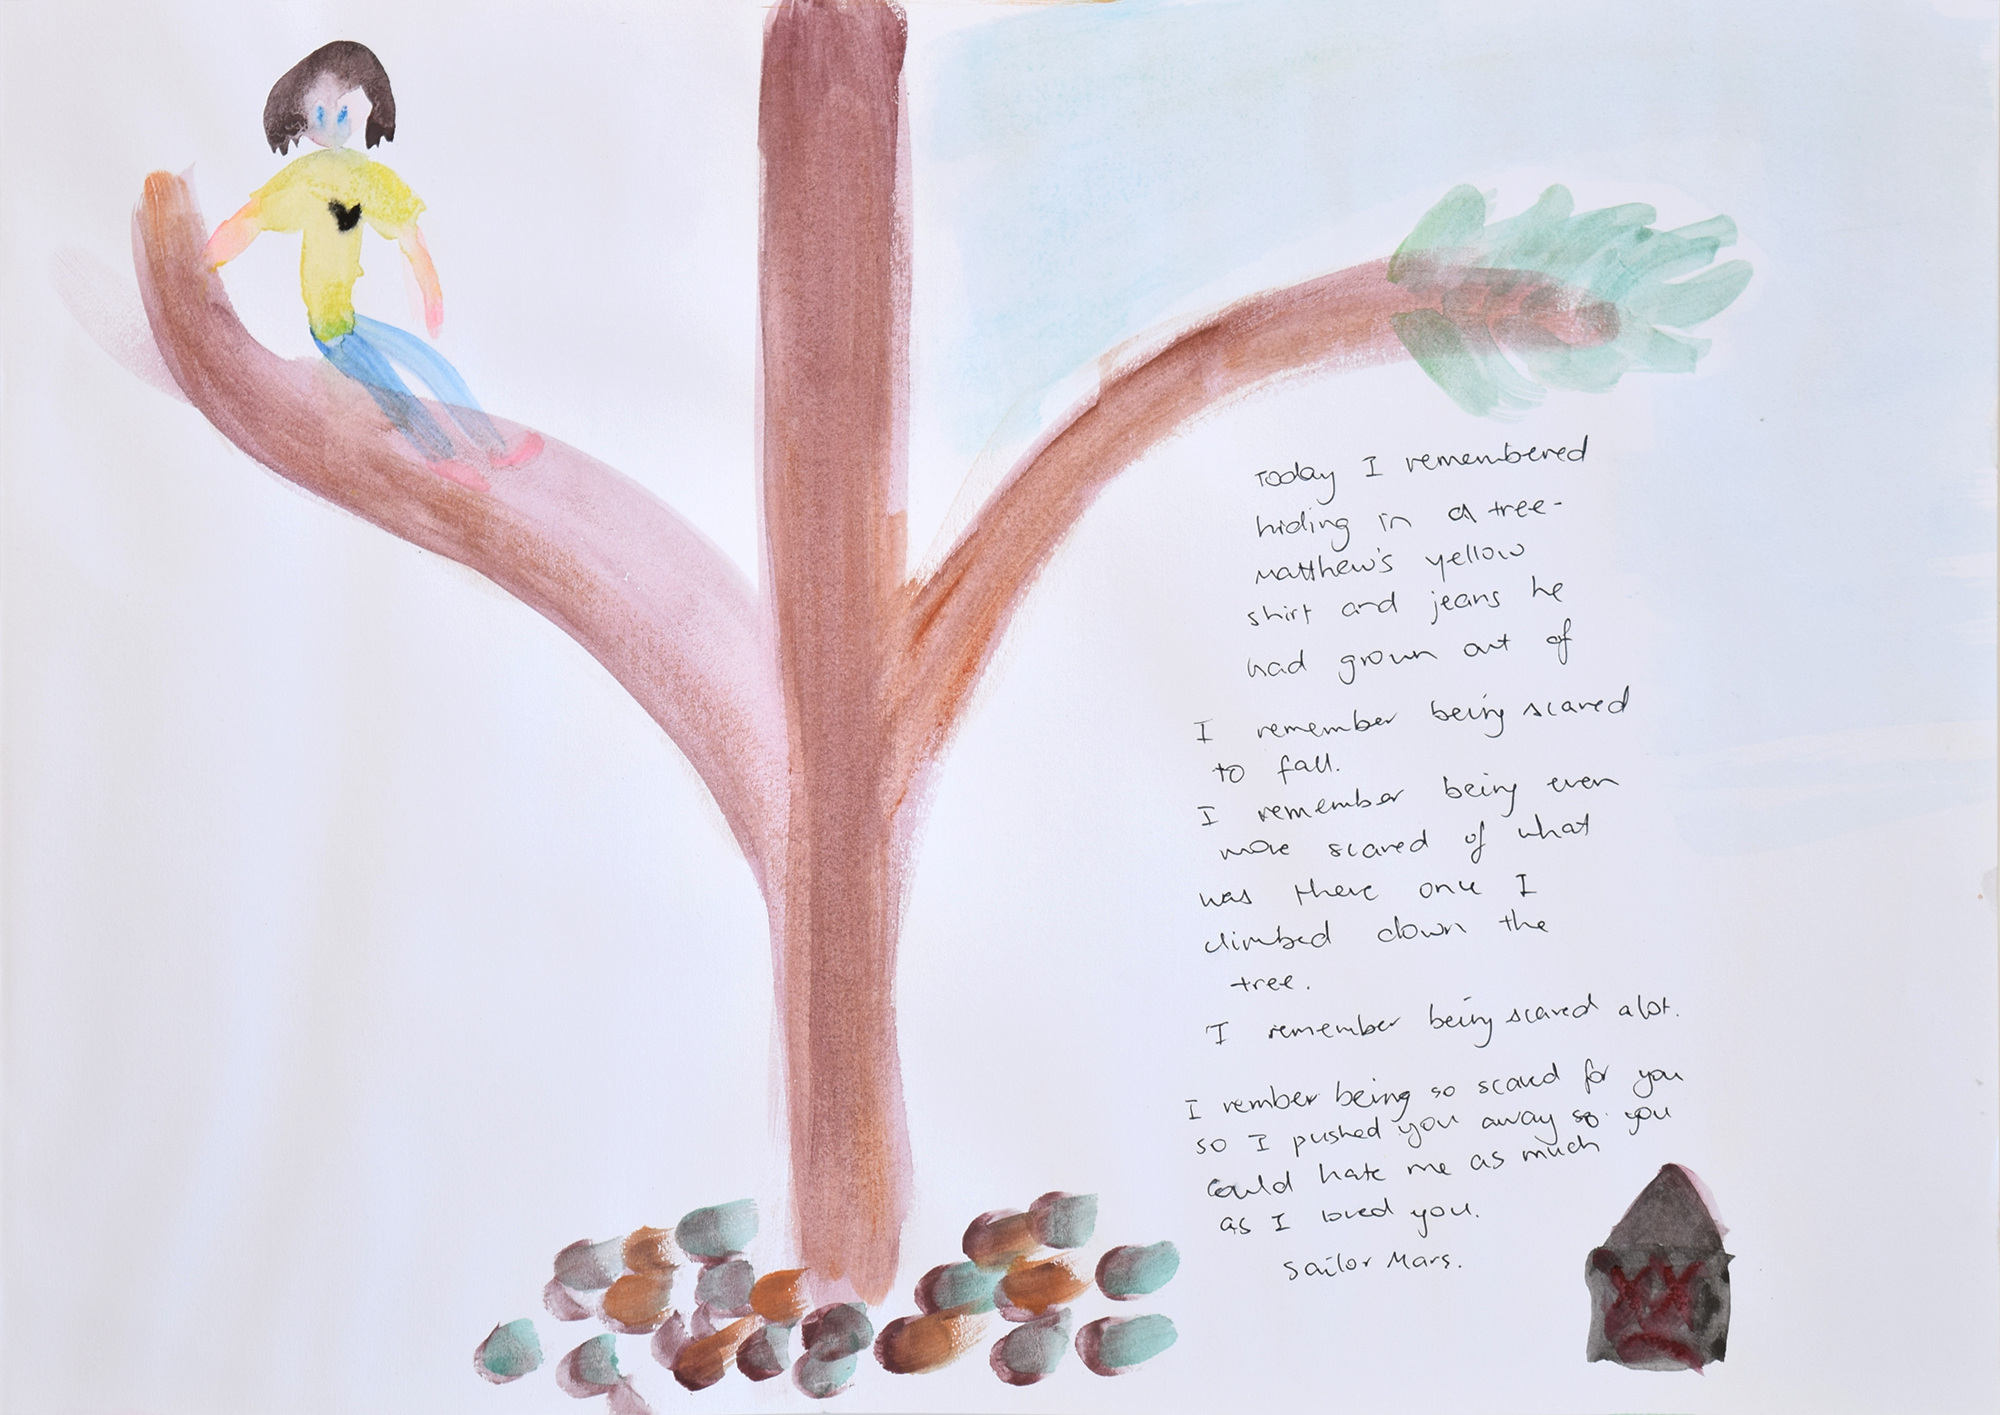 Today I remembered
hiding in a tree-
Matthew's yellow
shirt and jeans he
had grown out of
I remember being scared
to fall.
I remember being even
more scared of what
was there once I
climbed down the
tree.
I remember being scared alot.
I rember being so scared for you
so I pushed you away so you
could hate me as much
as I loved you.
Sailor Mars.